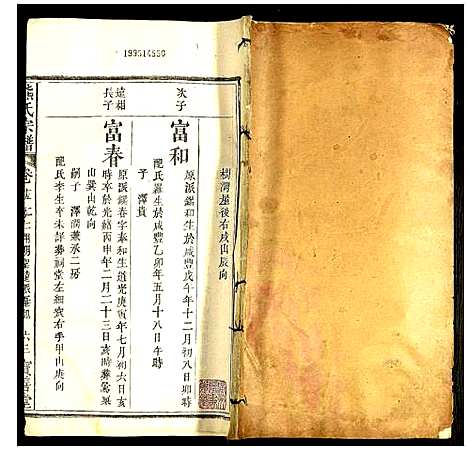 199514550
樹灣屋後右戌山辰向
次子
富和
原派鑑和生於咸豐戊午年十二月初八日卯時
配氏羅生於咸豐乙卯年五月十八日午時
子 澤貴
達相
長子
富春
原派鑑春字奉和生道光庚寅年七月初六日亥
時卒於光緒丙申年二月二十三日亥時葬
山巽山乾向
嗣子 澤潤兼承二房
配氏李生卒未詳葬祠堂左細 右手甲山庚向
熊氏宗譜